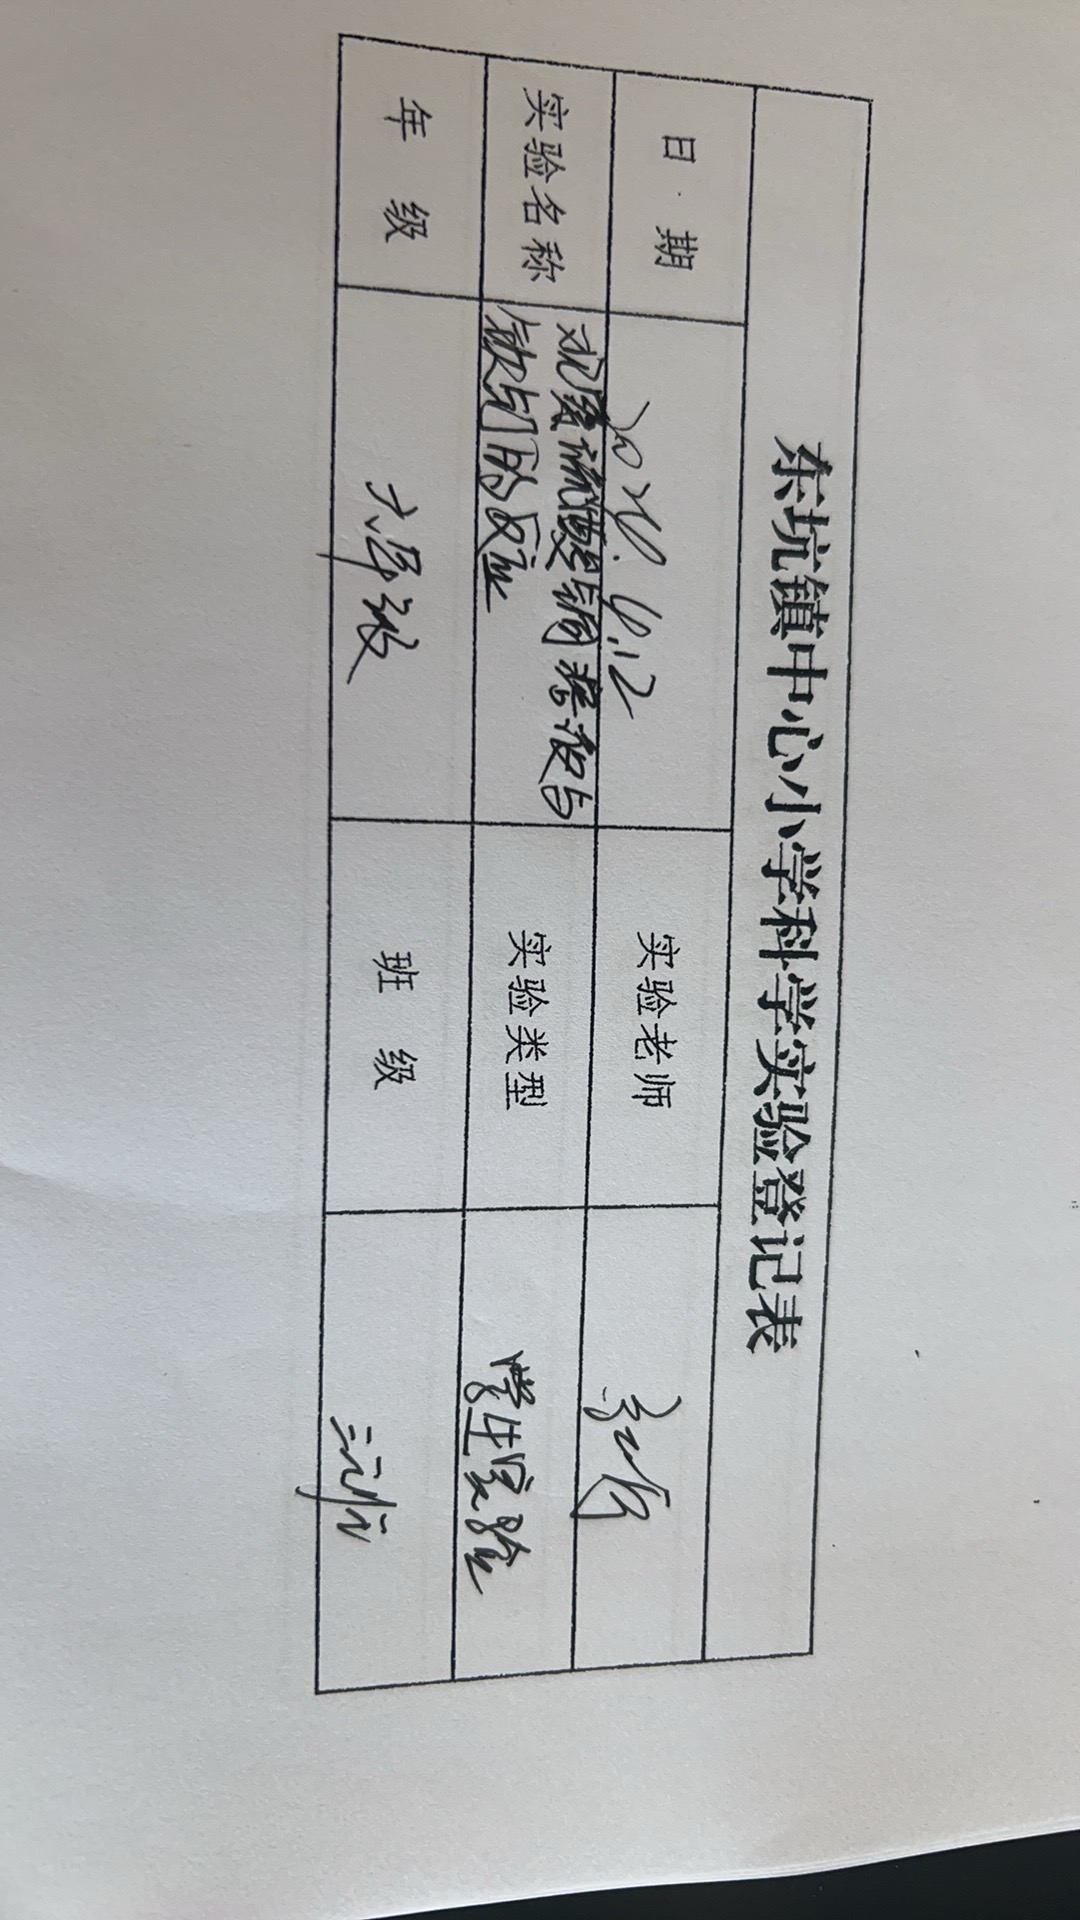 东坑镇中心小学科学实验登记表
日期
实验老师
实验名称 观察硫酸铜溶液与
铁钉的反应
实验类型 学生实验
年级 六年级
班级